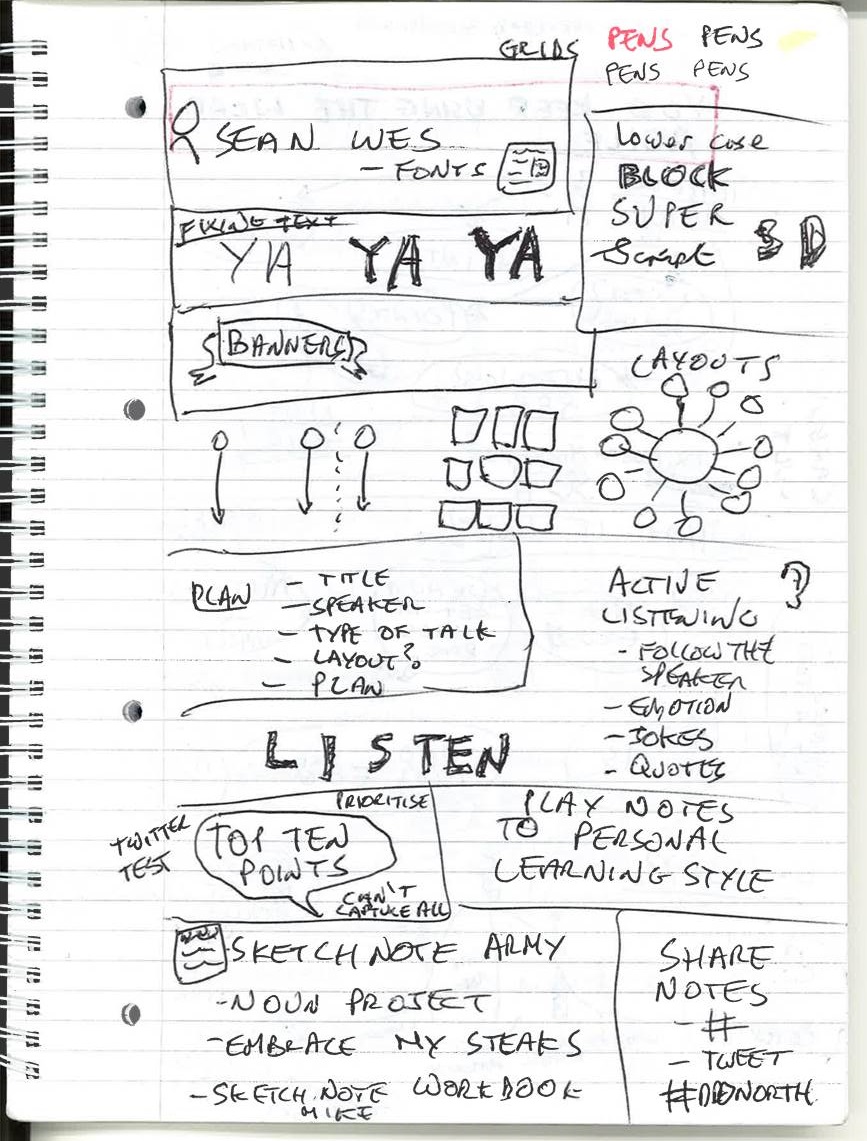 GRIDS
PENS PENS
PENS PENS
SEAN WES
- FONTS
lower case
BLOCK
SUPER
Script
FIXING TEXT
YA YA YA
BANNERS
LAYOUTS
PLAN
- TITLE
- SPEAKER
- TYPE OF TALK
- LAYOUT?
- PLAN
ACTIVE ?
LISTENING
- FOLLOW THE
SPEAKER
- EMOTION
- JOKES
- QUOTES
LISTEN
PRIORITISE
TWITTER
TEST
TOP TEN
POINTS
CAN'T
CAPTURE ALL
PLAY NOTES
TO PERSONAL
LEARNING STYLE
SKETCH NOTE ARMY
- NOUN PROJECT
- EMBRACE MY STEAKS
- SKETCH NOTE WORKBOOK
MIKE
SHARE
NOTES
- #
- TWEET
#DDDNORTH